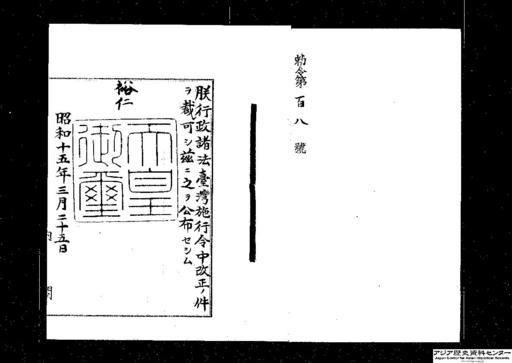 勅令第百八號
朕行政諸法臺灣施行令中改正ノ件
ヲ裁可シ茲ニ之ヲ公布セシム
裕仁
天皇御璽
昭和十五年三月二十五日
内閣
アジア歴史資料センター
Japan Center for Asian Historical Records